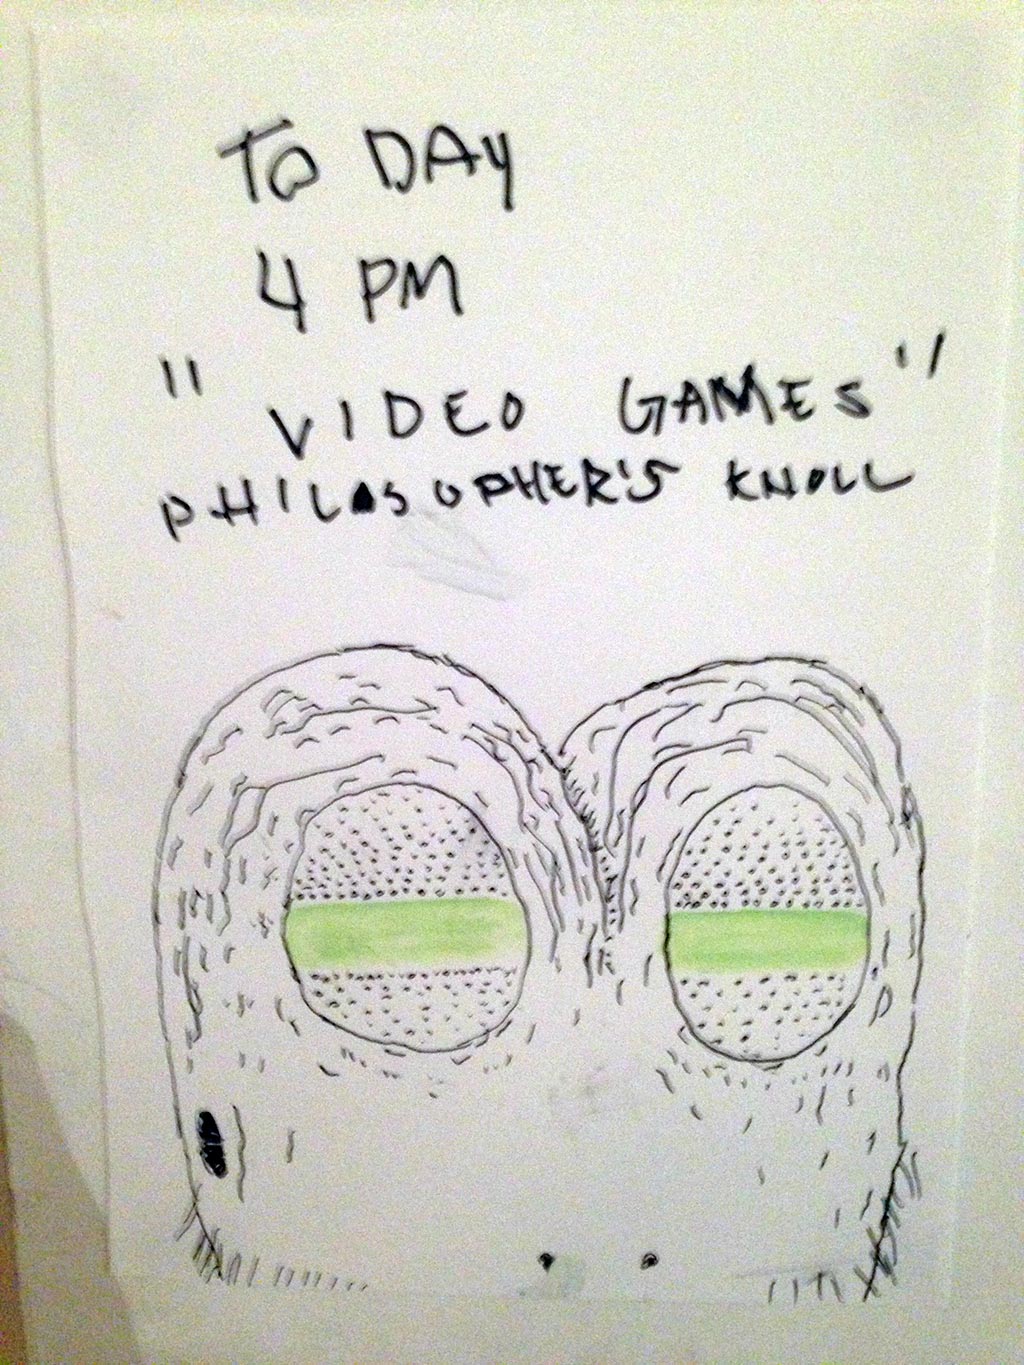 TO DAY
4 PM
"VIDEO GAMES"
PHILOSOPHER'S KNOLL